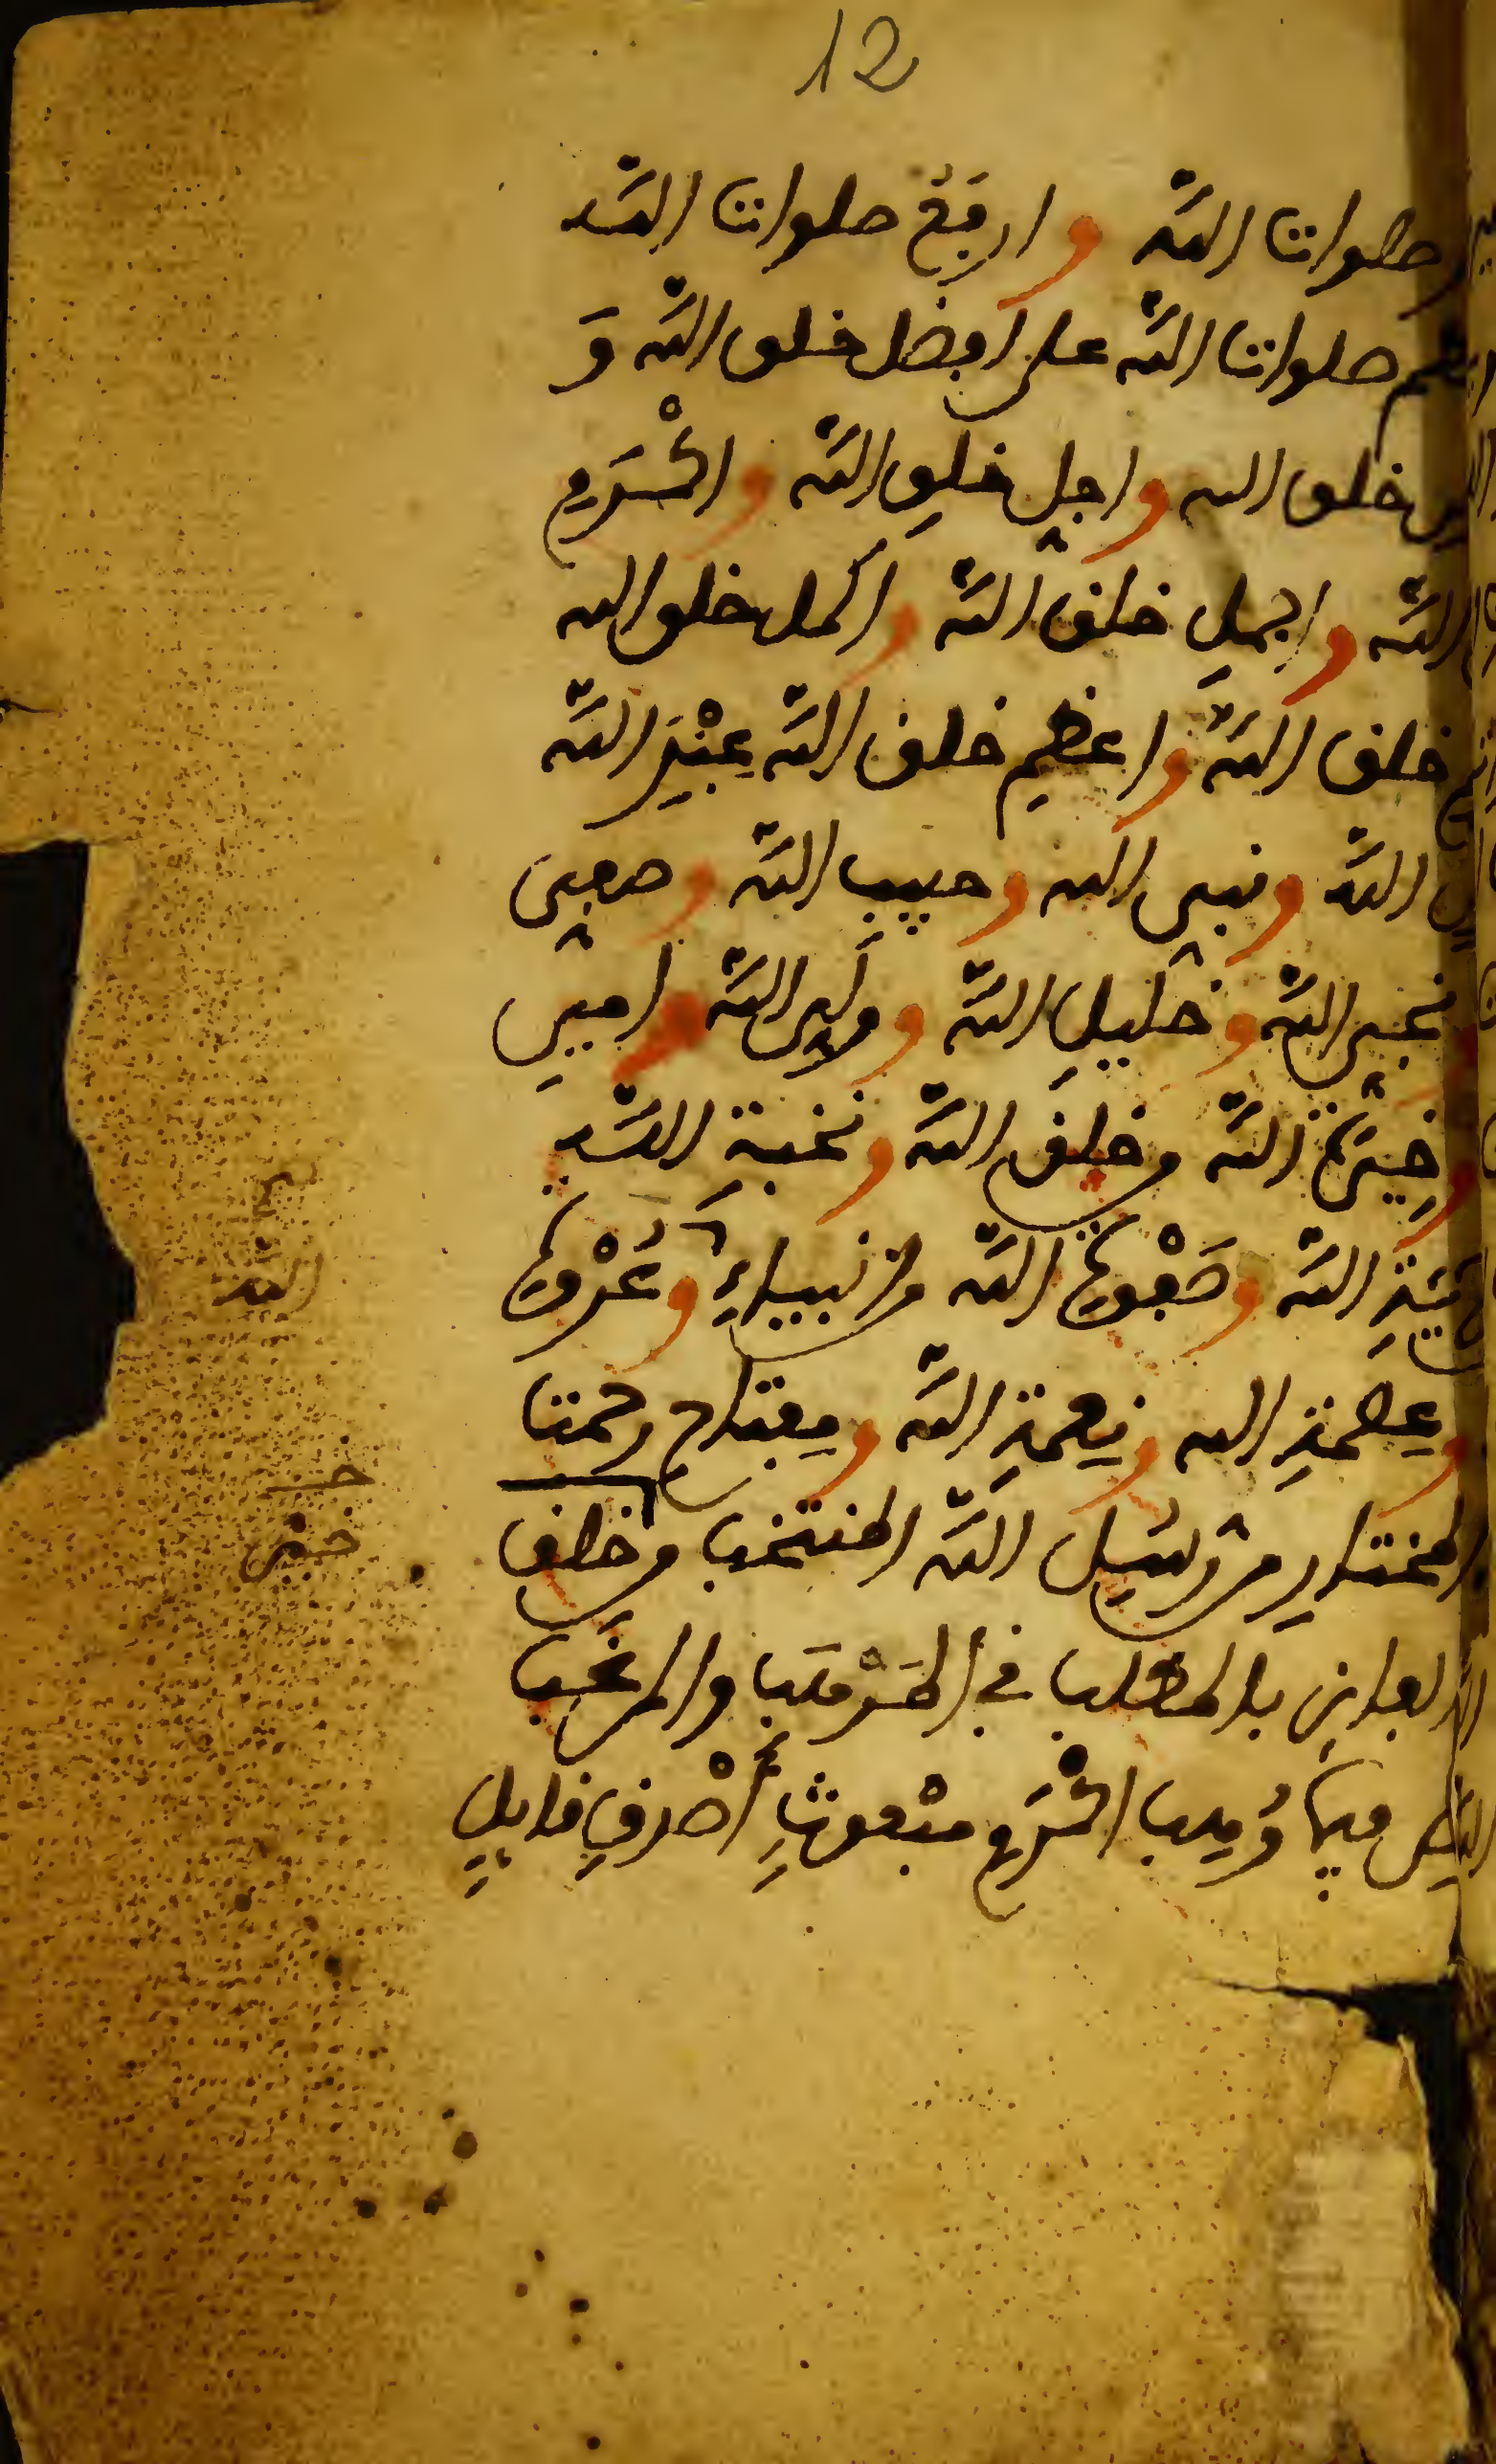 12
صلوات الله وارفع صلوات الله
صلوات الله على افضل خلق الله و
خلق الله واجل خلق الله واكرم
الله واجمل خلق الله واكمل خلق الله
خلق الله واعظم خلق الله عند الله
الله ونبي الله وحبيب الله وصفي
نجي الله وخليل الله وولي الله وامين
وخيرة الله من خلق الله ونخبة الله
الله وصفوة الله من انبياء وعروة
وعصمة الله ونعمة الله ومفتاح رحمت
المختار من رسل الله المنتخب من خلق
الفايز بالمطلب في المرهب والمرغب
فيما وهب اكرم مبعوث أصدق قايل
الله